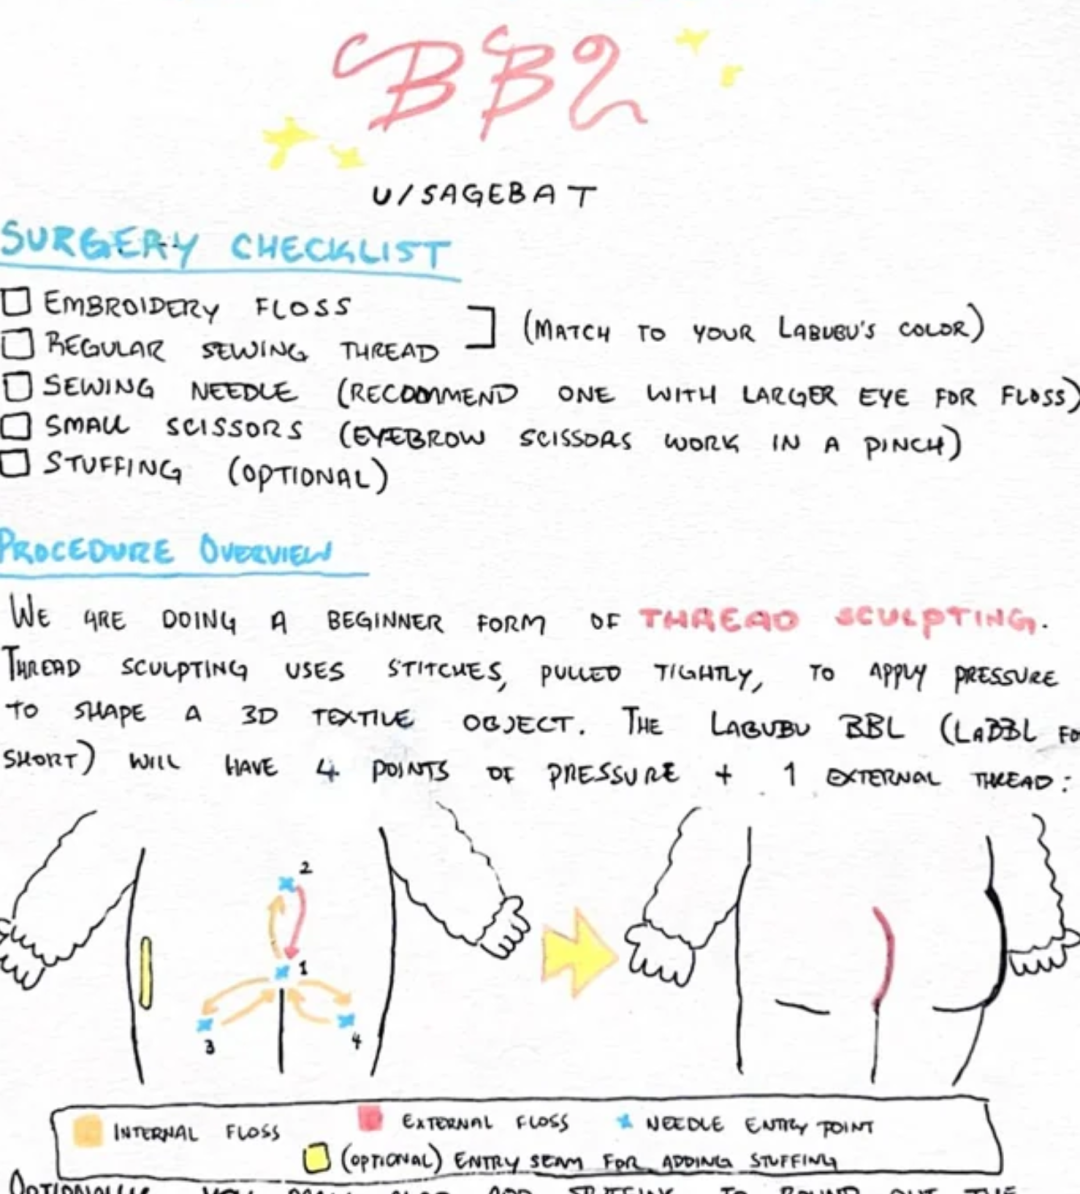 BBL
U/SAGEBAT
SURGERY CHECKLIST
EMBROIDERY FLOSS
REGULAR SEWING THREAD
(MATCH TO YOUR LABUBU'S COLOR)
SEWING NEEDLE (RECOMMEND ONE WITH LARGER EYE FOR FLOSS)
SMALL SCISSORS (EYEBROW SCISSORS WORK IN A PINCH)
STUFFING (OPTIONAL)
PROCEDURE OVERVIEW
WE ARE DOING A BEGINNER FORM OF THREAD SCULPTING.
THREAD SCULPTING USES STITCHES, PULLED TIGHTLY, TO APPLY PRESSURE
TO SHAPE A 3D TEXTILE OBJECT. THE LABUBU BBL (LABBL FO
SHORT) WILL HAVE 4 POINTS OF PRESSURE + 1 EXTERNAL THREAD:
2
1
3
4
INTERNAL FLOSS
EXTERNAL FLOSS
NEEDLE ENTRY POINT
(OPTIONAL) ENTRY SEAM FOR ADDING STUFFING